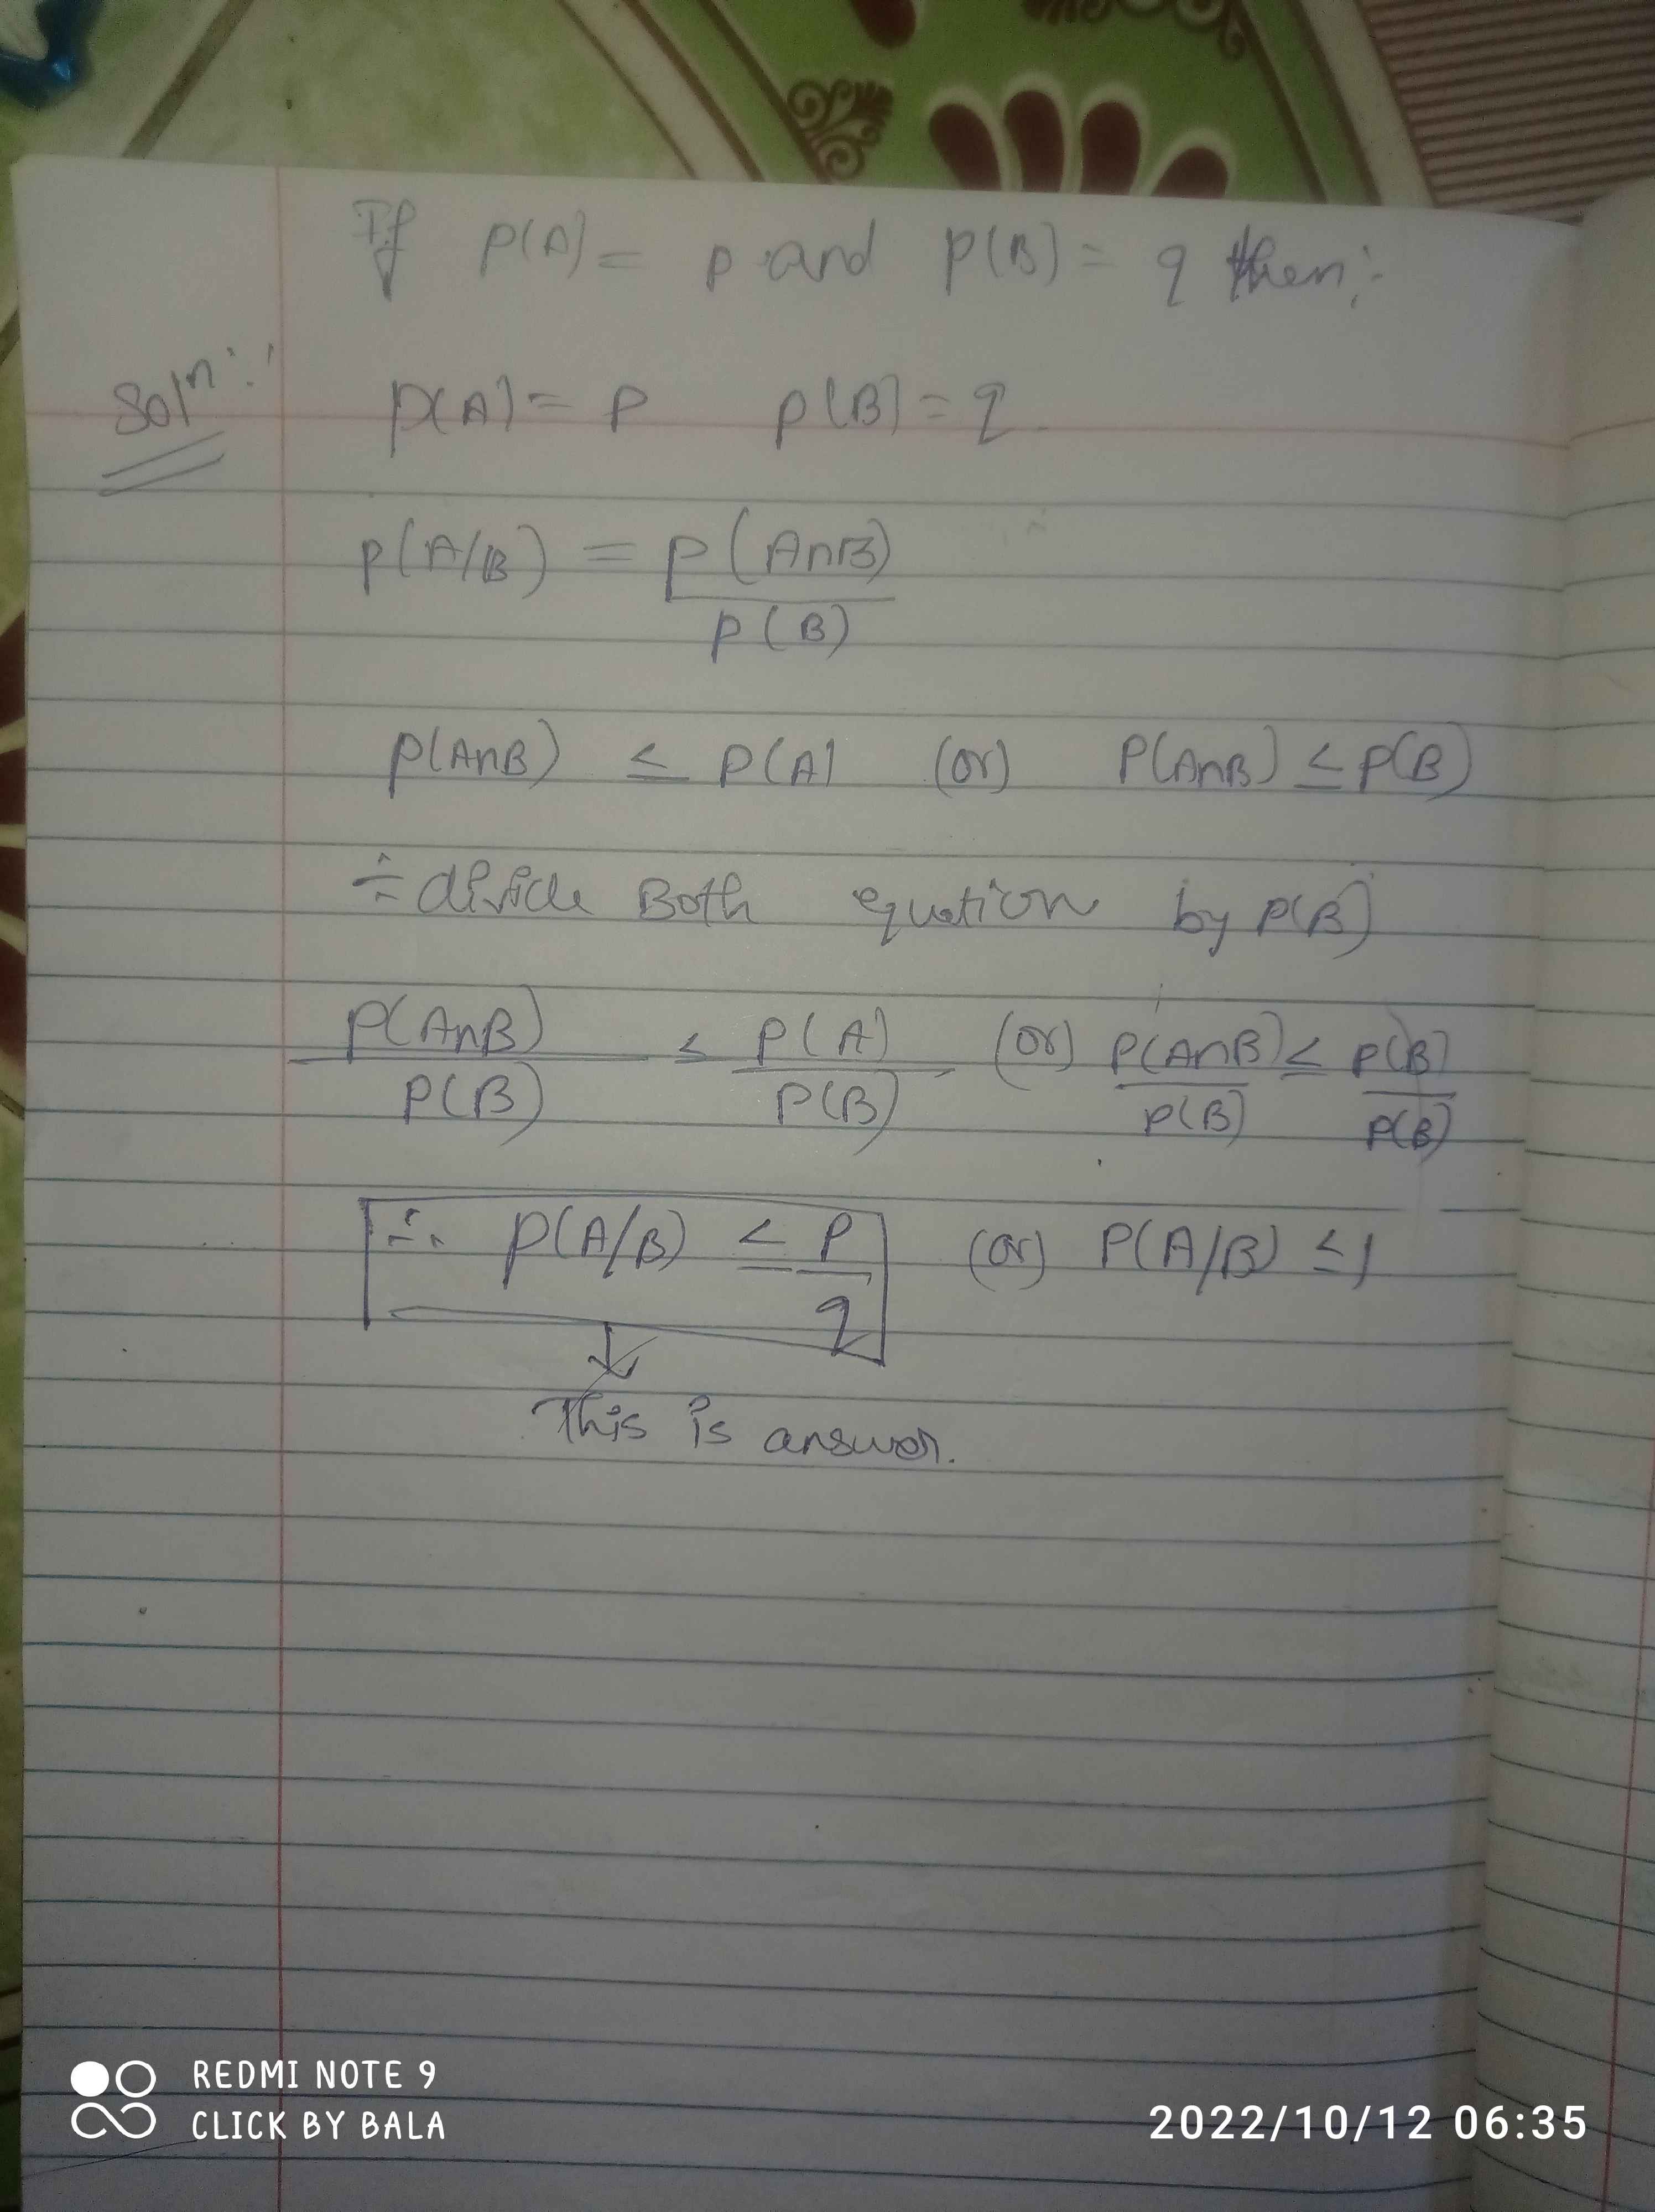 If P(A) = p and P(B) = q then :-
Solⁿ :- P(A) = P P(B) = q
P(A/B) = P(A∩B)
P(B)
P(A∩B) ≤ P(A) (or) P(A∩B) ≤ P(B)
÷ divide Both equation by P(B)
P(A∩B) ≤ P(A) (or) P(A∩B) ≤ P(B)
P(B) P(B) P(B) P(B)
∴ P(A/B) ≤ P (or) P(A/B) ≤ 1
q
This is answer.
REDMI NOTE 9
CLICK BY BALA
2022/10/12 06:35